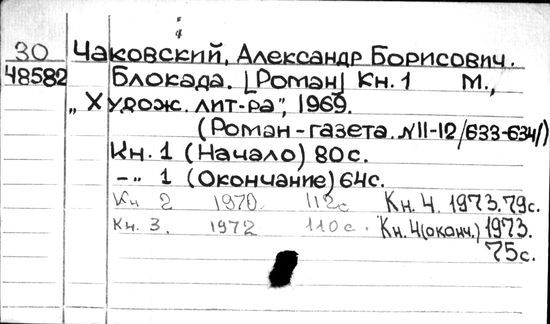 30 Чаковский, Александр Борисович.
48582 Блокада. [Роман] Кн. 1 М.,
„Худож. лит-ра", 1969.
(Роман-газета. N11-12/633-634/)
Кн. 1 (Начало) 80с.
–„– 1 (Окончание) 64с.
Кн 2 1970. 112с Кн. 4. 1973. 79с.
Кн. 3. 1972 110с. Кн. 4(оконч.) 1973.
75с.